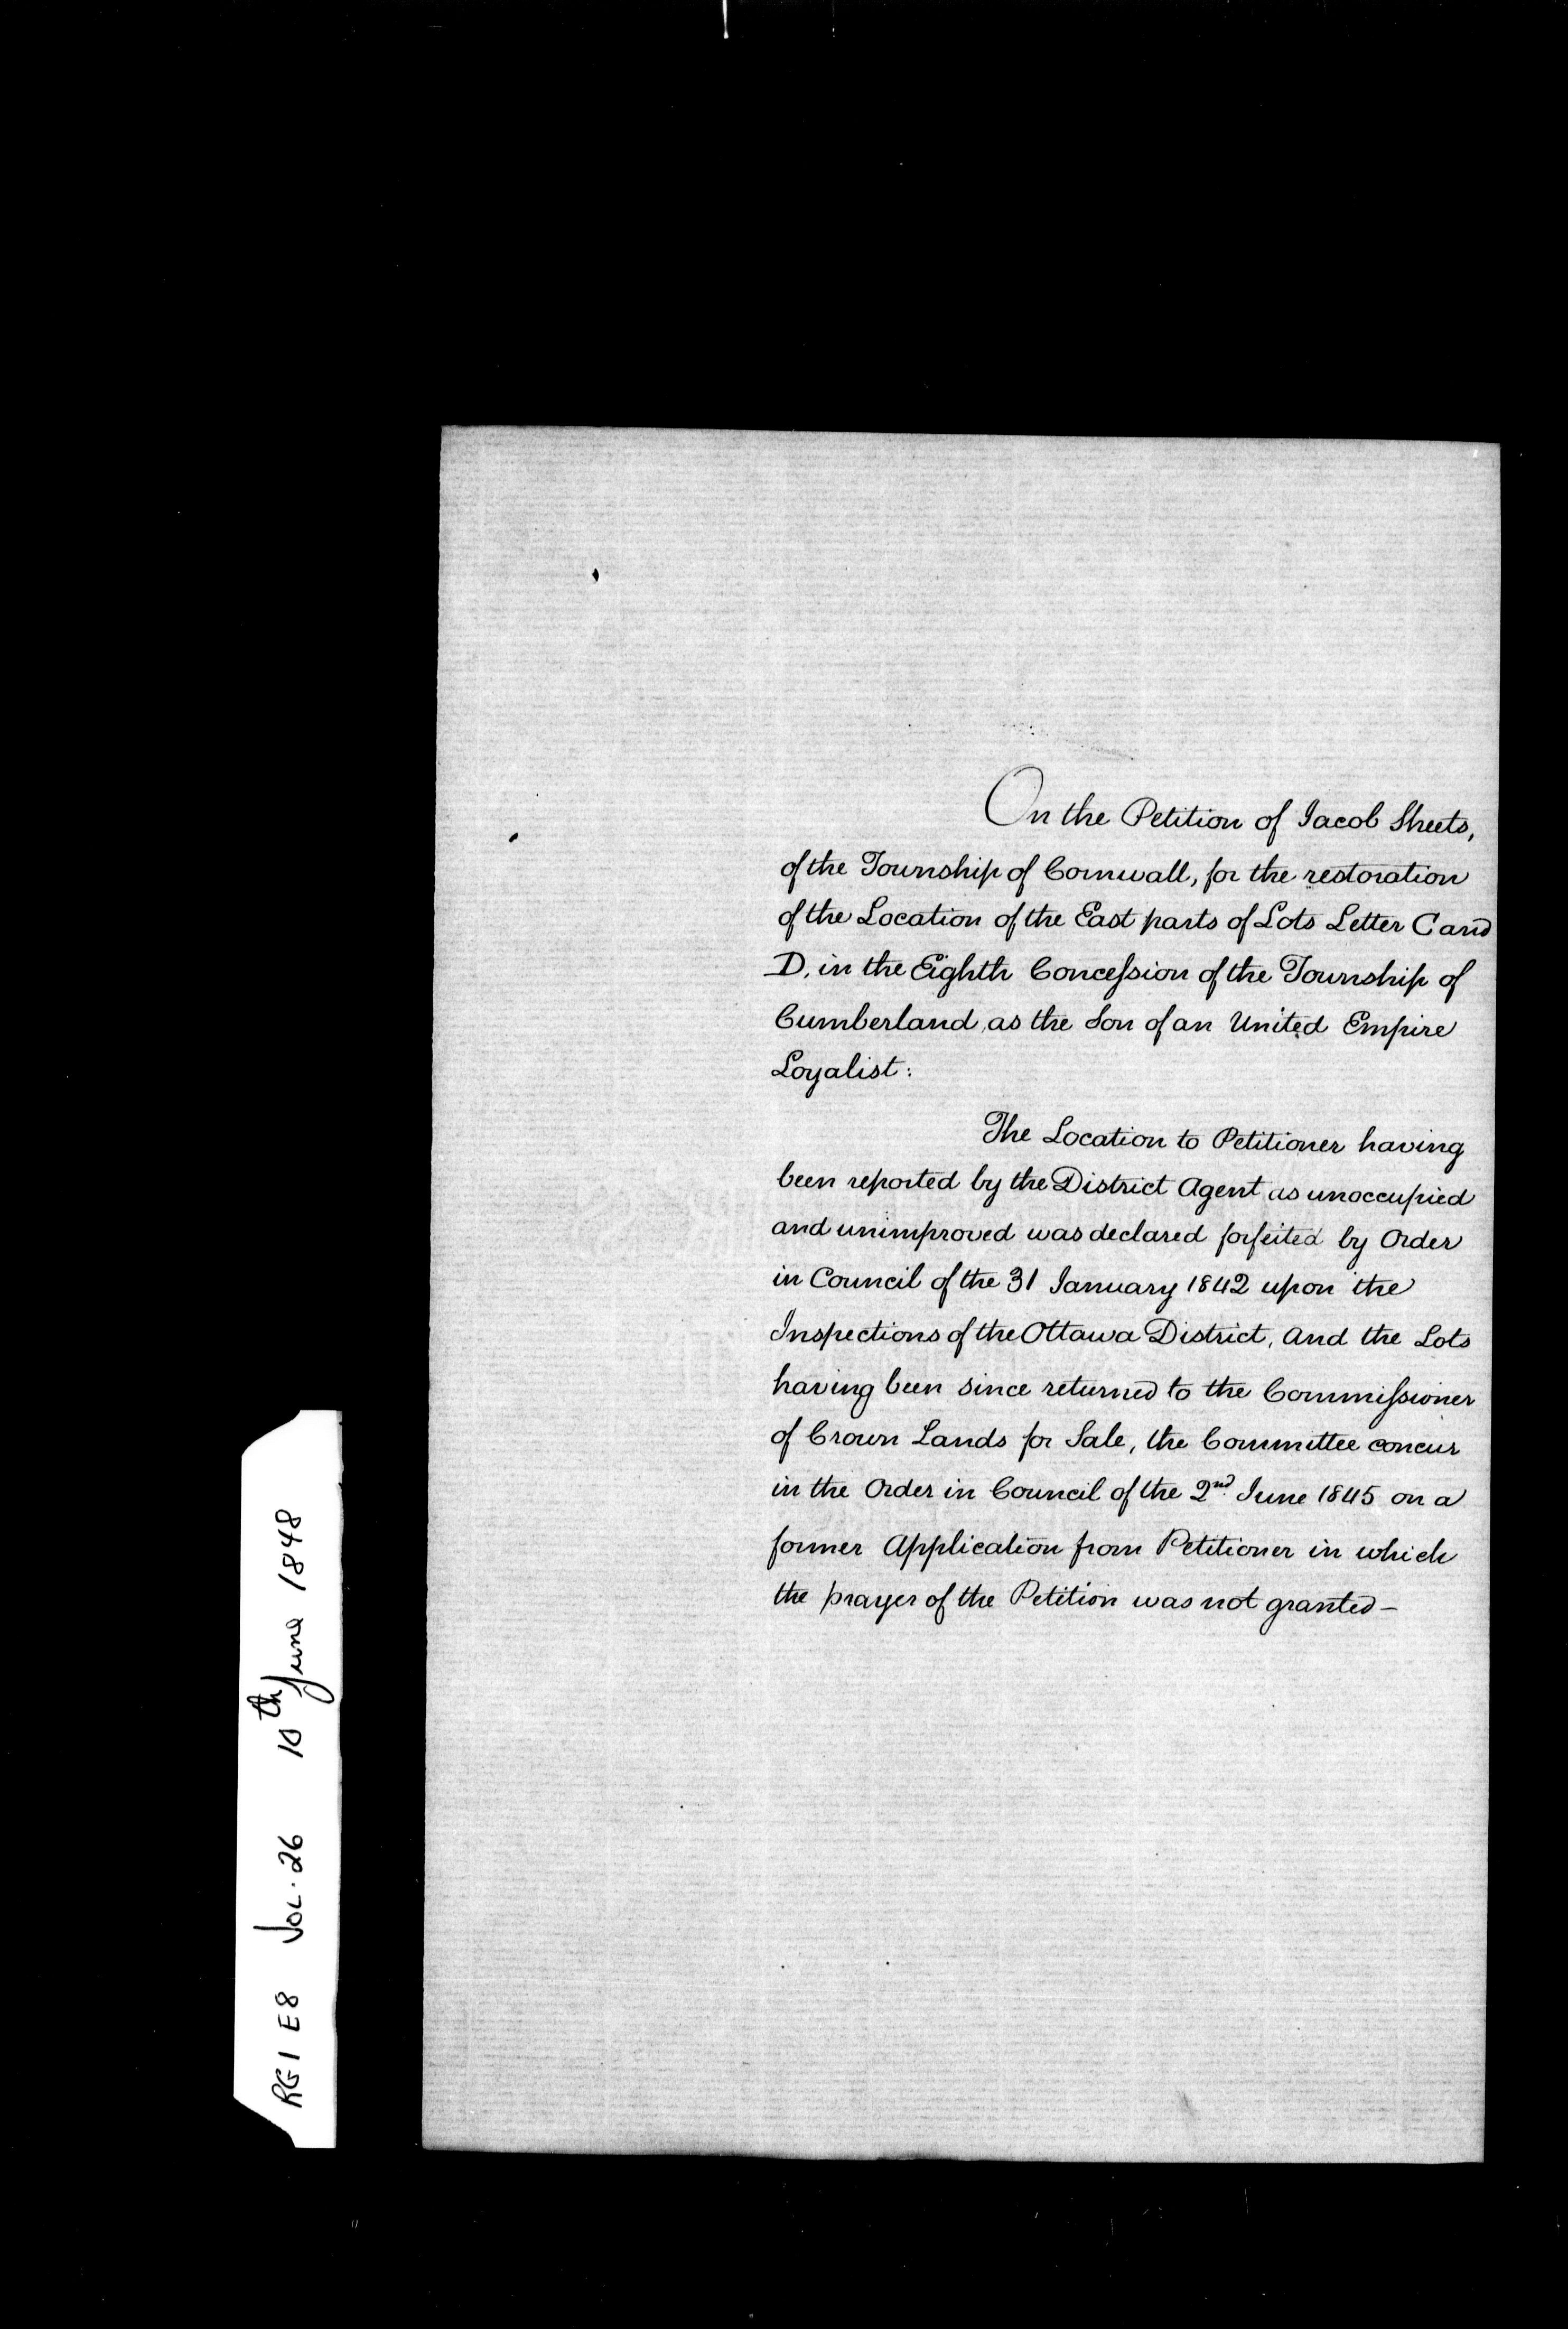 On the Petition of Jacob Sheets,
of the Township of Cornwall, for the restoration
of the Location of the East parts of Lots Letter C and
D, in the Eighth Concession of the Township of
Cumberland, as the Son of an United Empire
Loyalist:
The Location to Petitioner having
been reported by the District Agent as unoccupied
and unimproved was declared forfeited by Order
in Council of the 31 January 1842 upon the
Inspections of the Ottawa District, and the Lots
having been since returned to the Commissioner
of Crown Lands for Sale, the Committee concur
in the Order in Council of the 2nd June 1845 on a
former Application from Petitioner in which
the prayer of the Petition was not granted—
RG1 E8 VOL. 26 10th June 1848